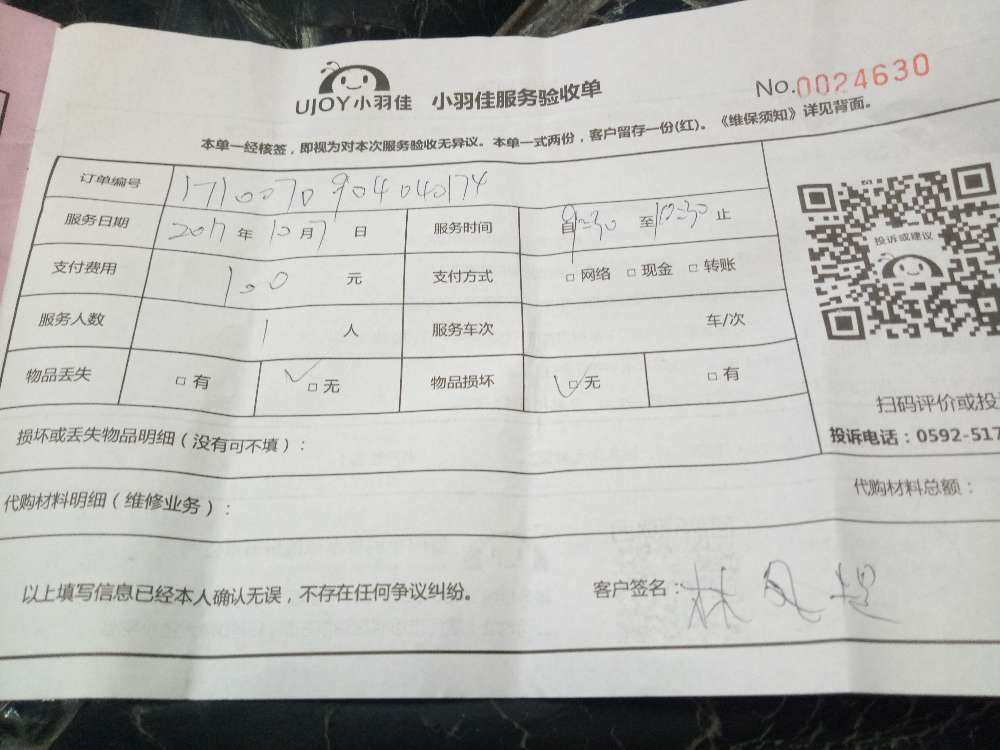 UJOY小羽佳 小羽佳服务验收单 No.0024630
本单一经核签，即视为对本次服务验收无异议。本单一式两份，客户留存一份(红)。《维保须知》详见背面。
订单编号 171007090404040174
服务日期 2017年10月7日 服务时间 自9:30至12:30止
支付费用 1.0 元 支付方式 □网络 □现金 □转账
服务人数 1 人 服务车次 车/次
物品丢失 □有 ✓□无 物品损坏 ✓□无 □有
投诉或建议
扫码评价或投
投诉电话：0592-517
损坏或丢失物品明细（没有可不填）：
代购材料明细（维修业务）：
代购材料总额：
以上填写信息已经本人确认无误，不存在任何争议纠纷。
客户签名：林